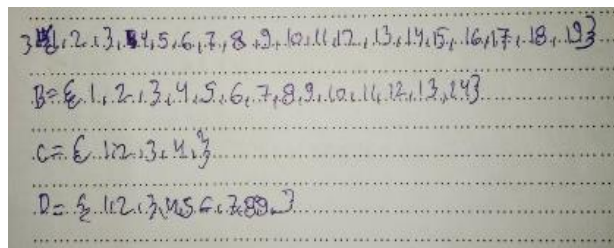 3 {1,2,3,4,5,6,7,8,9,10,11,12,13,14,15,16,17,18,19}
B={1,2,3,4,5,6,7,8,9,10,11,12,13,14}
C={1,2,3,4,}
D={1,2,3,4,5,6,7,8,9,}